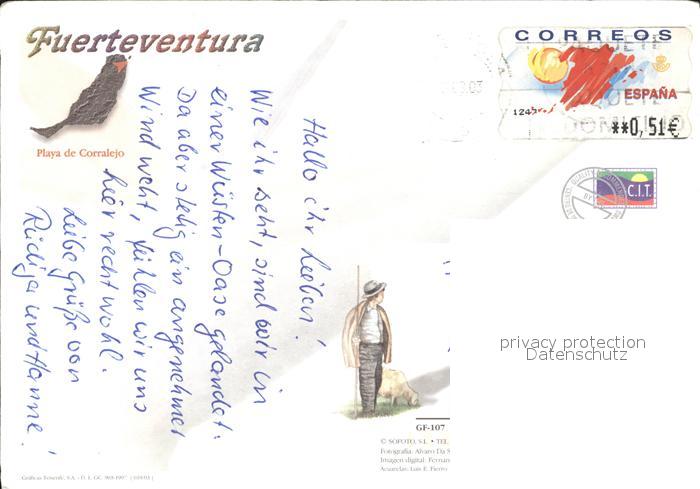 Fuerteventura
Playa de Corralejo
Hallo ihr Lieben!
Wie ihr seht, sind wir in
einer Wüsten-Oase gelandet.
Da aber stetig ein angenehmer
Wind weht, fühlen wir uns
hier recht wohl.
Liebe Grüße von
Rüdiger und Hanne!
CORREOS
ESPAÑA
**0,51€
C.I.T.
privacy protection
Datenschutz
GF-107
© SOFOTO, S.L. • TEL.
Fotografía: Alvaro Da S
Imagen digital: Fernan
Acuarelas: Luis E. Fierro